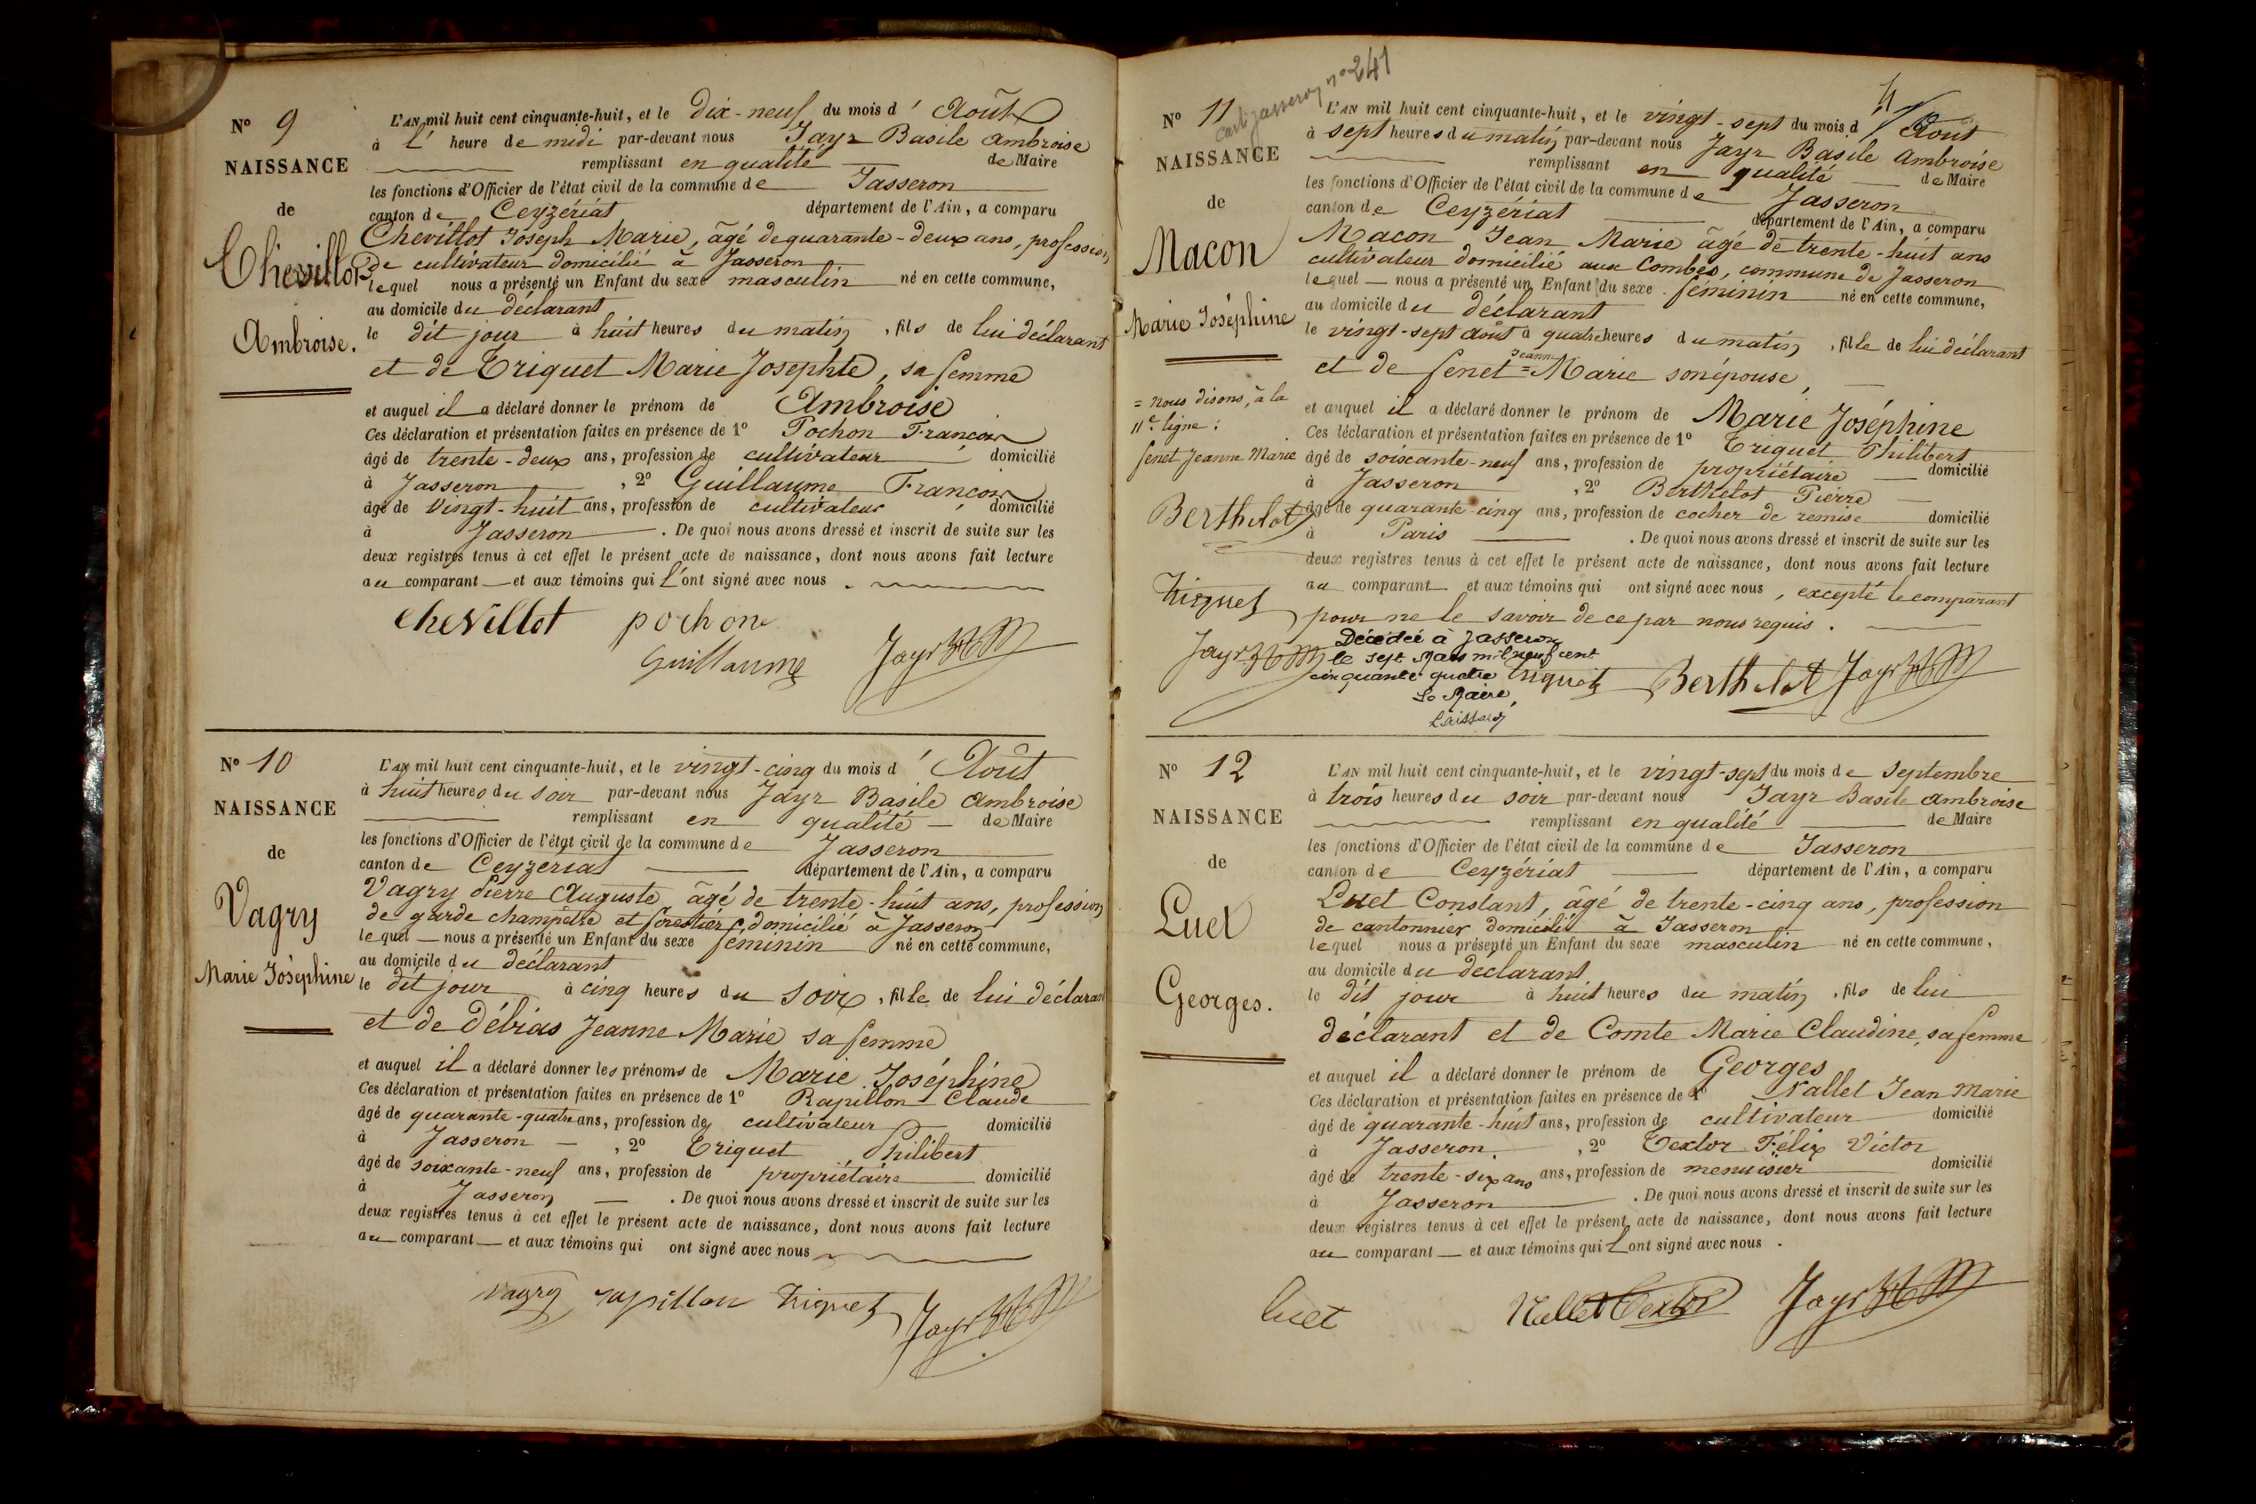 N° 9
NAISSANCE
de
Chevillot
Ambroise.
L'AN mil huit cent cinquante-huit, et le Dix-neuf du mois d' Août
à l' heure de midi par-devant nous Jayr Basile Ambroise
remplissant en qualité de Maire
les fonctions d'Officier de l'état civil de la commune de Jasseron
canton de Ceyzériat département de l'Ain, a comparu
Chevillot Joseph Marie, âgé de quarante-deux ans, profession
de cultivateur domicilié à Jasseron
lequel nous a présenté un Enfant du sexe masculin né en cette commune,
au domicile du déclarant
le dit jour à huit heures du matin, fils de lui déclarant
et de Triquet Marie Josephte, sa femme
et auquel il a déclaré donner le prénom de Ambroise
Ces déclaration et présentation faites en présence de 1° Pochon François
âgé de trente-deux ans, profession de cultivateur domicilié
à Jasseron, 2° Guillaume François
âgé de Vingt-huit ans, profession de cultivateur domicilié
à Jasseron. De quoi nous avons dressé et inscrit de suite sur les
deux registres tenus à cet effet le présent acte de naissance, dont nous avons fait lecture
au comparant et aux témoins qui l'ont signé avec nous.
Chevillot pochon
Guillaume Jayr
N° 10
NAISSANCE
de
Vagry
Marie Joséphine
L'AN mil huit cent cinquante-huit, et le vingt-cinq du mois d' Août
à huit heures du soir par-devant nous Jayr Basile Ambroise
remplissant en qualité de Maire
les fonctions d'Officier de l'état civil de la commune de Jasseron
canton de Ceyzériat département de l'Ain, a comparu
Vagry Pierre Auguste âgé de trente-huit ans, profession
de garde champêtre et forestier, domicilié à Jasseron
lequel nous a présenté un Enfant du sexe féminin né en cette commune,
au domicile du déclarant
le dit jour à cinq heures du soir, fille de lui déclarant
et de Débias Jeanne Marie sa femme
et auquel il a déclaré donner les prénoms de Marie Joséphine
Ces déclaration et présentation faites en présence de 1° Rapillon Claude
âgé de quarante-quatre ans, profession de cultivateur domicilié
à Jasseron, 2° Triquet Philibert
âgé de soixante-neuf ans, profession de propriétaire domicilié
à Jasseron. De quoi nous avons dressé et inscrit de suite sur les
deux registres tenus à cet effet le présent acte de naissance, dont nous avons fait lecture
au comparant et aux témoins qui ont signé avec nous
Vagry rapillon Triquet Jayr
carte jasseron n° 241
4
N° 11
NAISSANCE
de
Macon
Marie Joséphine
= nous disons, à la
11e ligne:
Senet Jeanne Marie
Berthelot
Triquet
Jayr
L'AN mil huit cent cinquante-huit, et le vingt-sept du mois d' Août
à sept heures du matin par-devant nous Jayr Basile Ambroise
remplissant en qualité de Maire
les fonctions d'Officier de l'état civil de la commune de Jasseron
canton de Ceyzériat département de l'Ain, a comparu
Macon Jean Marie âgé de trente-huit ans
cultivateur domicilié aux Combes, commune de Jasseron
lequel nous a présenté un Enfant du sexe féminin né en cette commune,
au domicile du déclarant
le vingt-sept Août à quatre heures du matin, fille de lui déclarant
et de Senet = Jeanne Marie son épouse,
et auquel il a déclaré donner le prénom de Marie Joséphine
Ces déclaration et présentation faites en présence de 1° Triquet Philibert
âgé de soixante-neuf ans, profession de propriétaire domicilié
à Jasseron, 2° Berthelot Pierre
âgé de quarante-cinq ans, profession de cocher de remise domicilié
à Paris. De quoi nous avons dressé et inscrit de suite sur les
deux registres tenus à cet effet le présent acte de naissance, dont nous avons fait lecture
au comparant et aux témoins qui ont signé avec nous, excepté le comparant
pour ne le savoir de ce par nous requis.
Décédée à Jasseron
le sept Mars mil neuf cent
cinquante quatre
Le Maire,
Triquet Berthelot Jayr
N° 12
NAISSANCE
de
Luet
Georges.
L'AN mil huit cent cinquante-huit, et le vingt-sept du mois de Septembre
à trois heures du soir par-devant nous Jayr Basile Ambroise
remplissant en qualité de Maire
les fonctions d'Officier de l'état civil de la commune de Jasseron
canton de Ceyzériat département de l'Ain, a comparu
Luet Constant, âgé de trente-cinq ans, profession
de cantonnier domicilié à Jasseron
lequel nous a présenté un Enfant du sexe masculin né en cette commune,
au domicile du déclarant
le dit jour à huit heures du matin, fils de lui
déclarant et de Comte Marie Claudine, sa femme
et auquel il a déclaré donner le prénom de Georges
Ces déclaration et présentation faites en présence de 1° Nallet Jean Marie
âgé de quarante-huit ans, profession de cultivateur domicilié
à Jasseron, 2° Textor Félix Victor
âgé de trente-six ans ans, profession de menuisier domicilié
à Jasseron. De quoi nous avons dressé et inscrit de suite sur les
deux registres tenus à cet effet le présent acte de naissance, dont nous avons fait lecture
au comparant et aux témoins qui l'ont signé avec nous.
Luet Nallet Textor Jayr